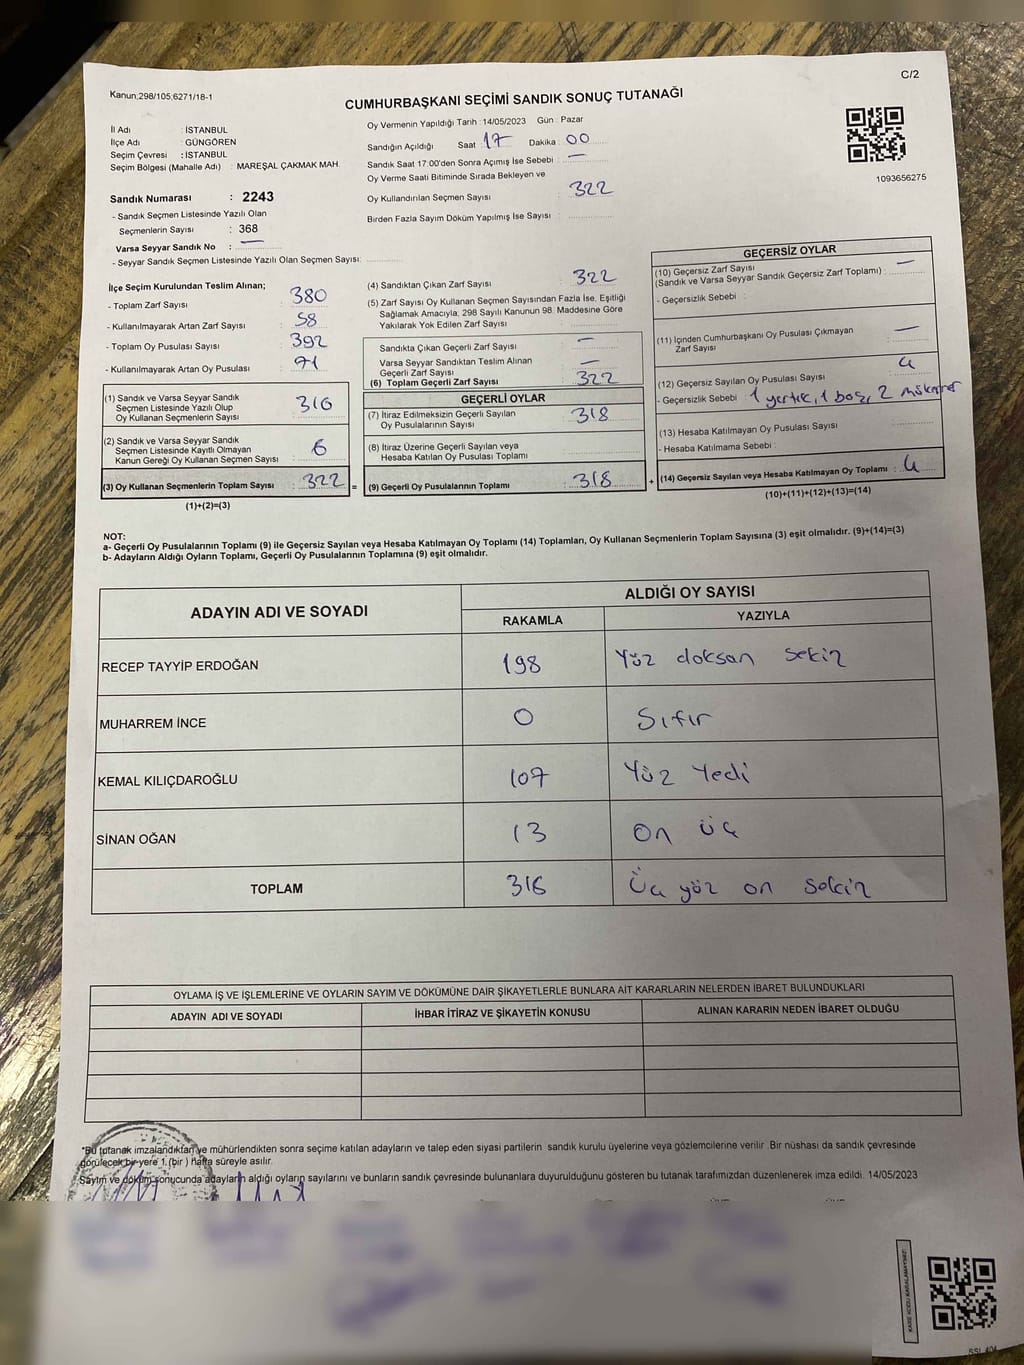 Kanun;298/105;6271/18-1
C/2
CUMHURBAŞKANI SEÇİMİ SANDIK SONUÇ TUTANAĞI
İl Adı : İSTANBUL
İlçe Adı : GÜNGÖREN
Seçim Çevresi : İSTANBUL
Seçim Bölgesi (Mahalle Adı) : MAREŞAL ÇAKMAK MAH.
Sandık Numarası : 2243
- Sandık Seçmen Listesinde Yazılı Olan
Seçmenlerin Sayısı : 368
Varsa Seyyar Sandık No : —
- Seyyar Sandık Seçmen Listesinde Yazılı Olan Seçmen Sayısı:
Oy Vermenin Yapıldığı Tarih : 14/05/2023 Gün : Pazar
Sandığın Açıldığı Saat : 17 Dakika : 00
Sandık Saat 17:00'den Sonra Açımış İse Sebebi : —
Oy Verme Saati Bitiminde Sırada Bekleyen ve
Oy Kullandırılan Seçmen Sayısı : 322
Birden Fazla Sayım Döküm Yapılmış İse Sayısı :
1093656275
İlçe Seçim Kurulundan Teslim Alınan;
- Toplam Zarf Sayısı : 380
- Kullanılmayarak Artan Zarf Sayısı : 58
- Toplam Oy Pusulası Sayısı : 392
- Kullanılmayarak Artan Oy Pusulası :
(1) Sandık ve Varsa Seyyar Sandık
Seçmen Listesinde Yazılı Olup
Oy Kullanan Seçmenlerin Sayısı : 316
(2) Sandık ve Varsa Seyyar Sandık
Seçmen Listesinde Kayıtlı Olmayan
Kanun Gereği Oy Kullanan Seçmen Sayısı : 6
(3) Oy Kullanan Seçmenlerin Toplam Sayısı : 322 =
(1)+(2)=(3)
(4) Sandıktan Çıkan Zarf Sayısı : 322
(5) Zarf Sayısı Oy Kullanan Seçmen Sayısından Fazla İse, Eşitliği
Sağlamak Amacıyla; 298 Sayılı Kanunun 98. Maddesine Göre
Yakılarak Yok Edilen Zarf Sayısı :
Sandıkta Çıkan Geçerli Zarf Sayısı : —
Varsa Seyyar Sandıktan Teslim Alınan
Geçerli Zarf Sayısı : —
(6) Toplam Geçerli Zarf Sayısı : 322
GEÇERLİ OYLAR
(7) İtiraz Edilmeksizin Geçerli Sayılan
Oy Pusulalarının Sayısı : 318
(8) İtiraz Üzerine Geçerli Sayılan veya
Hesaba Katılan Oy Pusulası Toplamı :
(9) Geçerli Oy Pusulalarının Toplamı : 318 +
GEÇERSİZ OYLAR
(10) Geçersiz Zarf Sayısı
(Sandık ve Varsa Seyyar Sandık Geçersiz Zarf Toplamı) : —
- Geçersizlik Sebebi :
(11) İçinden Cumhurbaşkanı Oy Pusulası Çıkmayan
Zarf Sayısı : —
(12) Geçersiz Sayılan Oy Pusulası Sayısı : 4
- Geçersizlik Sebebi : 1 yırtık, 1 boş, 2 mükerrer
(13) Hesaba Katılmayan Oy Pusulası Sayısı :
- Hesaba Katılmama Sebebi :
(14) Geçersiz Sayılan veya Hesaba Katılmayan Oy Toplamı : 4
(10)+(11)+(12)+(13)=(14)
NOT:
a- Geçerli Oy Pusulalarının Toplamı (9) ile Geçersiz Sayılan veya Hesaba Katılmayan Oy Toplamı (14) Toplamları, Oy Kullanan Seçmenlerin Toplam Sayısına (3) eşit olmalıdır. (9)+(14)=(3)
b- Adayların Aldığı Oyların Toplamı, Geçerli Oy Pusulalarının Toplamına (9) eşit olmalıdır.
ADAYIN ADI VE SOYADI
ALDIĞI OY SAYISI
RAKAMLA YAZIYLA
RECEP TAYYİP ERDOĞAN 198 Yüz doksan sekiz
MUHARREM İNCE 0 Sıfır
KEMAL KILIÇDAROĞLU 107 Yüz Yedi
SİNAN OĞAN 13 On üç
TOPLAM 318 Üç yüz on sekiz
OYLAMA İŞ VE İŞLEMLERİNE VE OYLARIN SAYIM VE DÖKÜMÜNE DAİR ŞİKAYETLERLE BUNLARA AİT KARARLARIN NELERDEN İBARET BULUNDUKLARI
ADAYIN ADI VE SOYADI İHBAR İTİRAZ VE ŞİKAYETİN KONUSU ALINAN KARARIN NEDEN İBARET OLDUĞU
*Bu tutanak imzalandıktan ve mühürlendikten sonra seçime katılan adayların ve talep eden siyasi partilerin sandık kurulu üyelerine veya gözlemcilerine verilir. Bir nüshası da sandık çevresinde
görülecek bir yere 1 (bir) hafta süreyle asılır.
Sayım ve döküm sonucunda adayların aldığı oyların sayılarını ve bunların sandık çevresinde bulunanlara duyurulduğunu gösteren bu tutanak tarafımızdan düzenlenerek imza edildi. 14/05/2023
KARE KODU KARALAMAYINIZ!